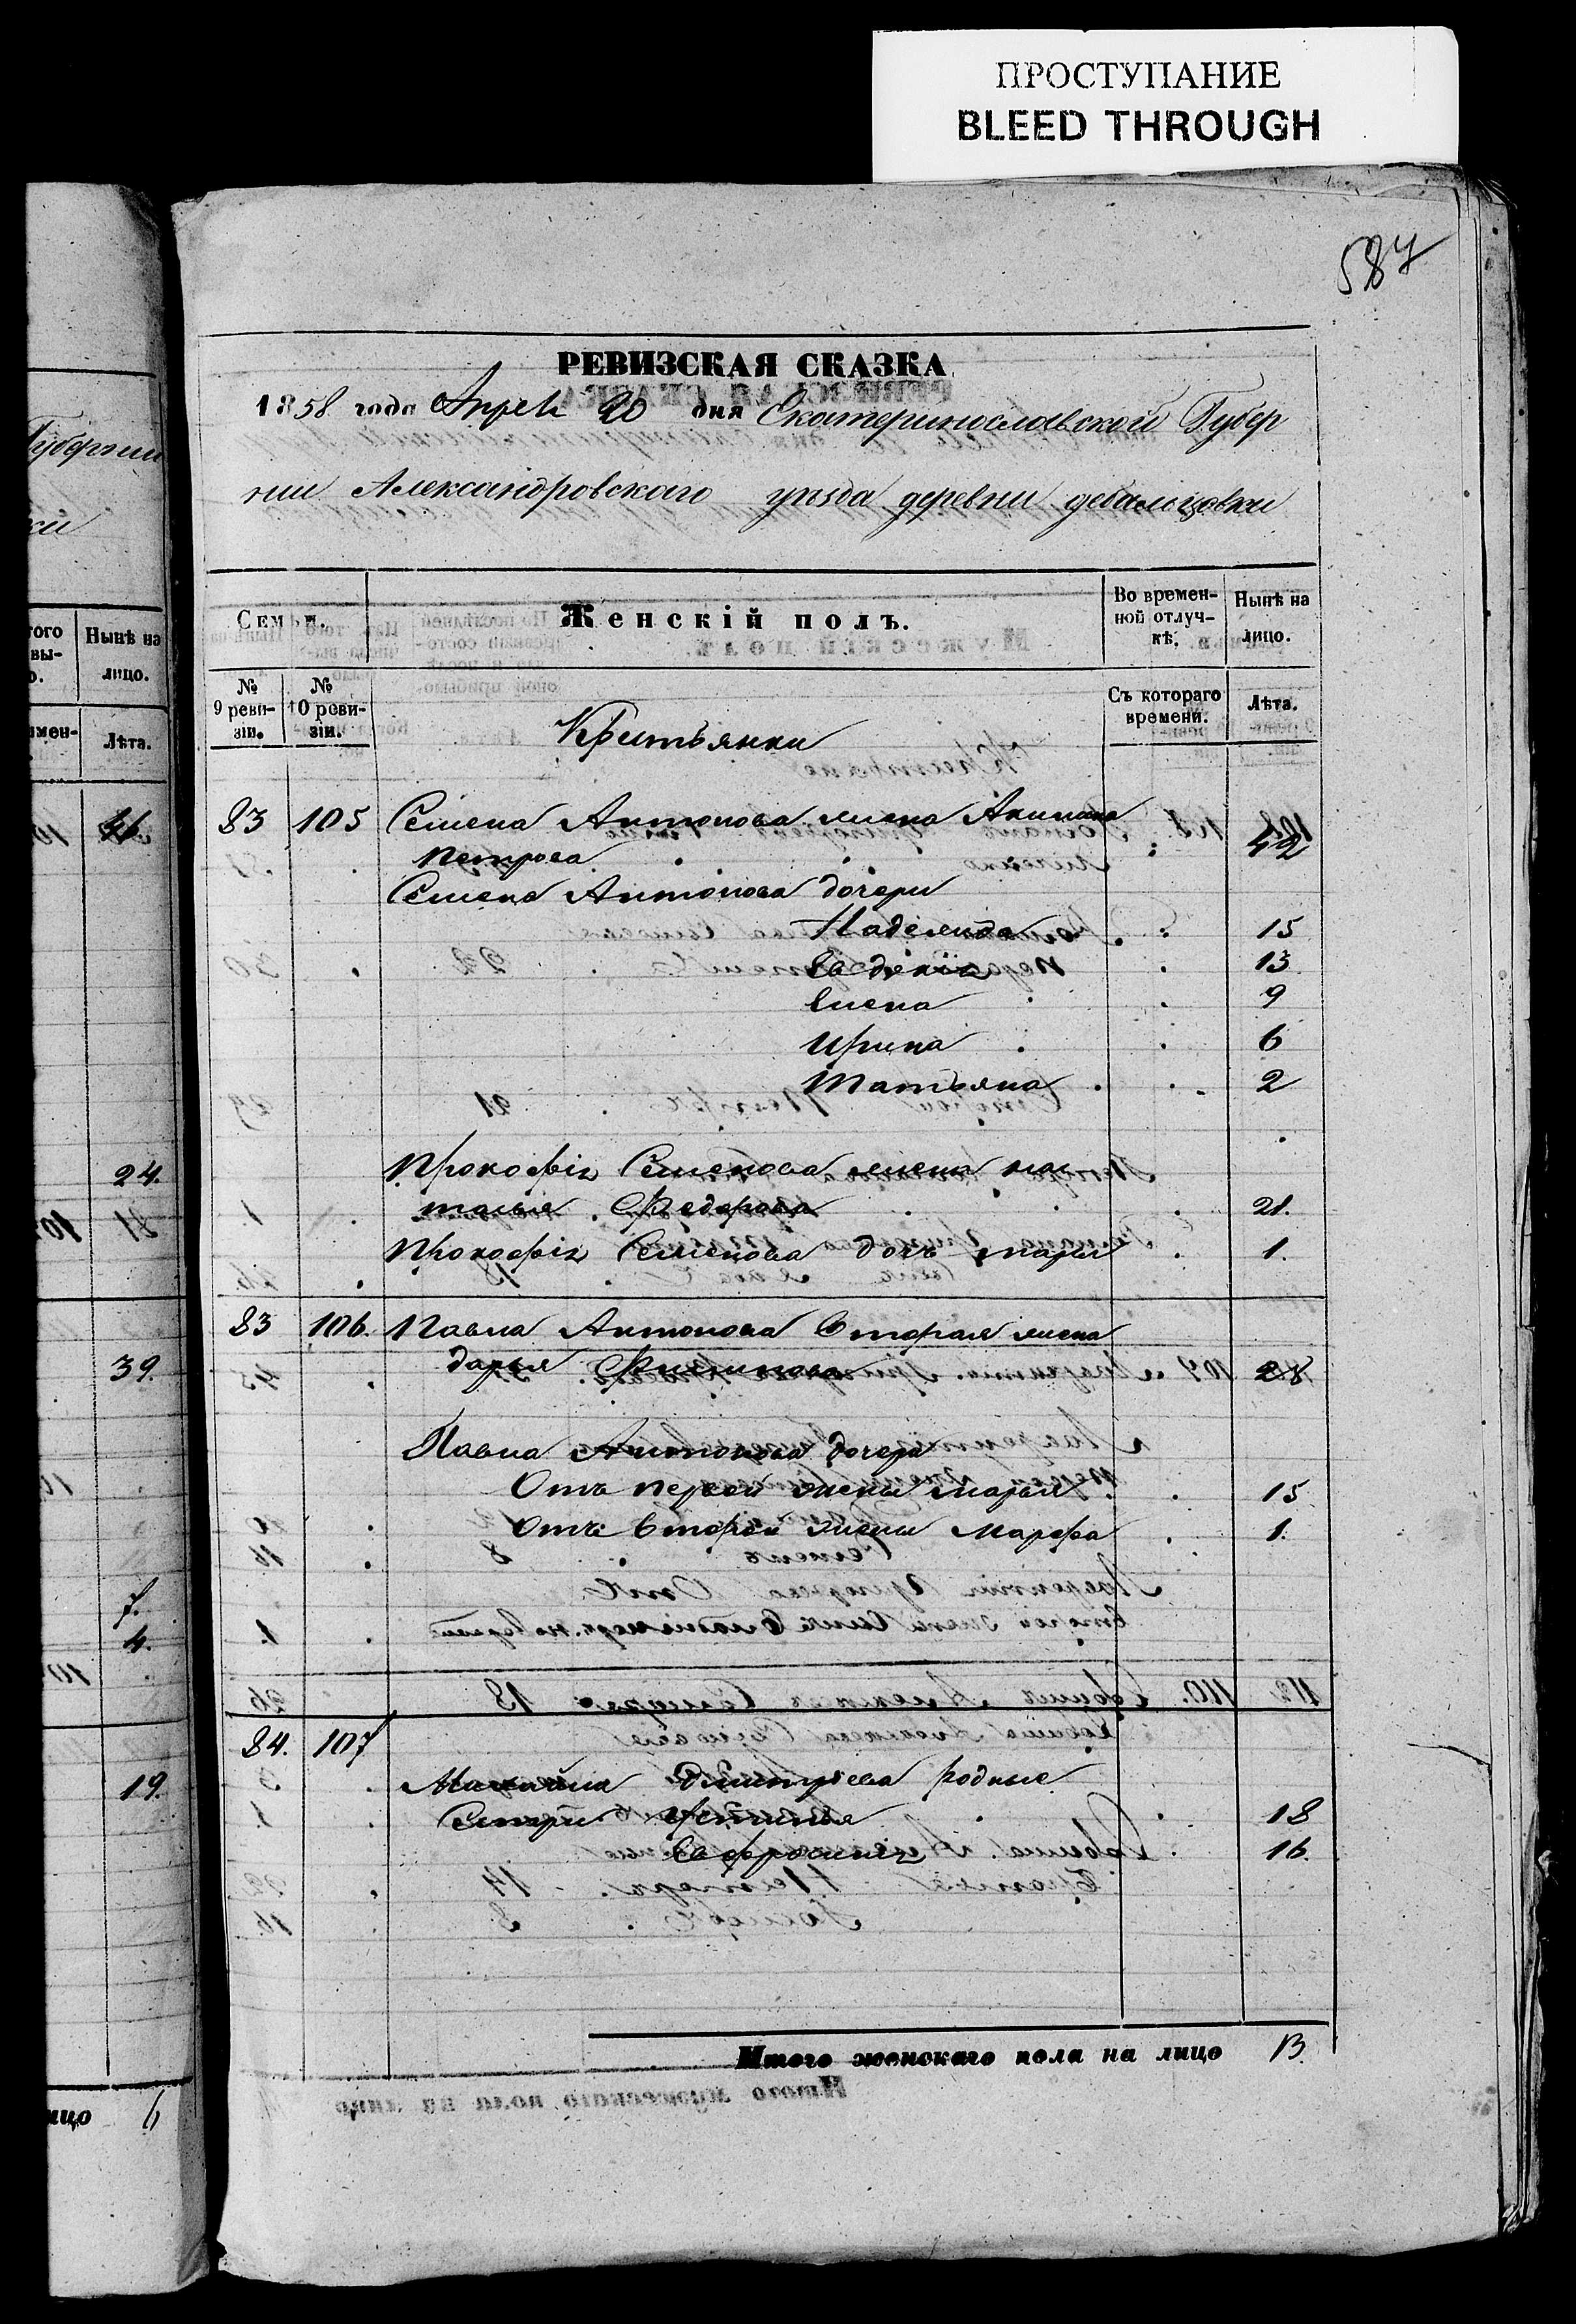 ПРОСТУПАНИЕ
BLEED THROUGH
587
РЕВИЗСКАЯ СКАЗКА
1858 года Апреля 20 дня Екатеринославской Губер
нии Александровскаго уѣзда деревни
Семьи.
Женскій полъ.
Во времен-
ной отлуч-
кѣ.
Нынѣ на
лицо.
№
9 реви-
зіи.
№
10 реви-
зіи.
Съ котораго
времени.
Лѣта.
Крестьянки
83 105 Семена Антонова жена Акилина
Петрова 42
Семена Антонова дочери
Надежда 15
Евдокія 13
Елена 9
Ирина 6
Татьяна 2
Прокофія Семенова жена На
талья Федорова 21.
Прокофія Семенова дочь Марья 1.
83 106. Павла Антонова Вторая жена
Дарья Филипова 28
Павла Антонова дочери
Отъ первой жены Марья 15
Отъ второй жены Марфа 1.
84. 107
Михайла Дмитріева родные
Сестри Устинья 18
Евфросинія 16.
Итого женскаго пола на лицо 13.
Губерніи
ки
того
вы-
о.
Нынѣ на
лицо.
имен-
Лѣта.
46
24.
39.
7.
4.
19.
лицо 6